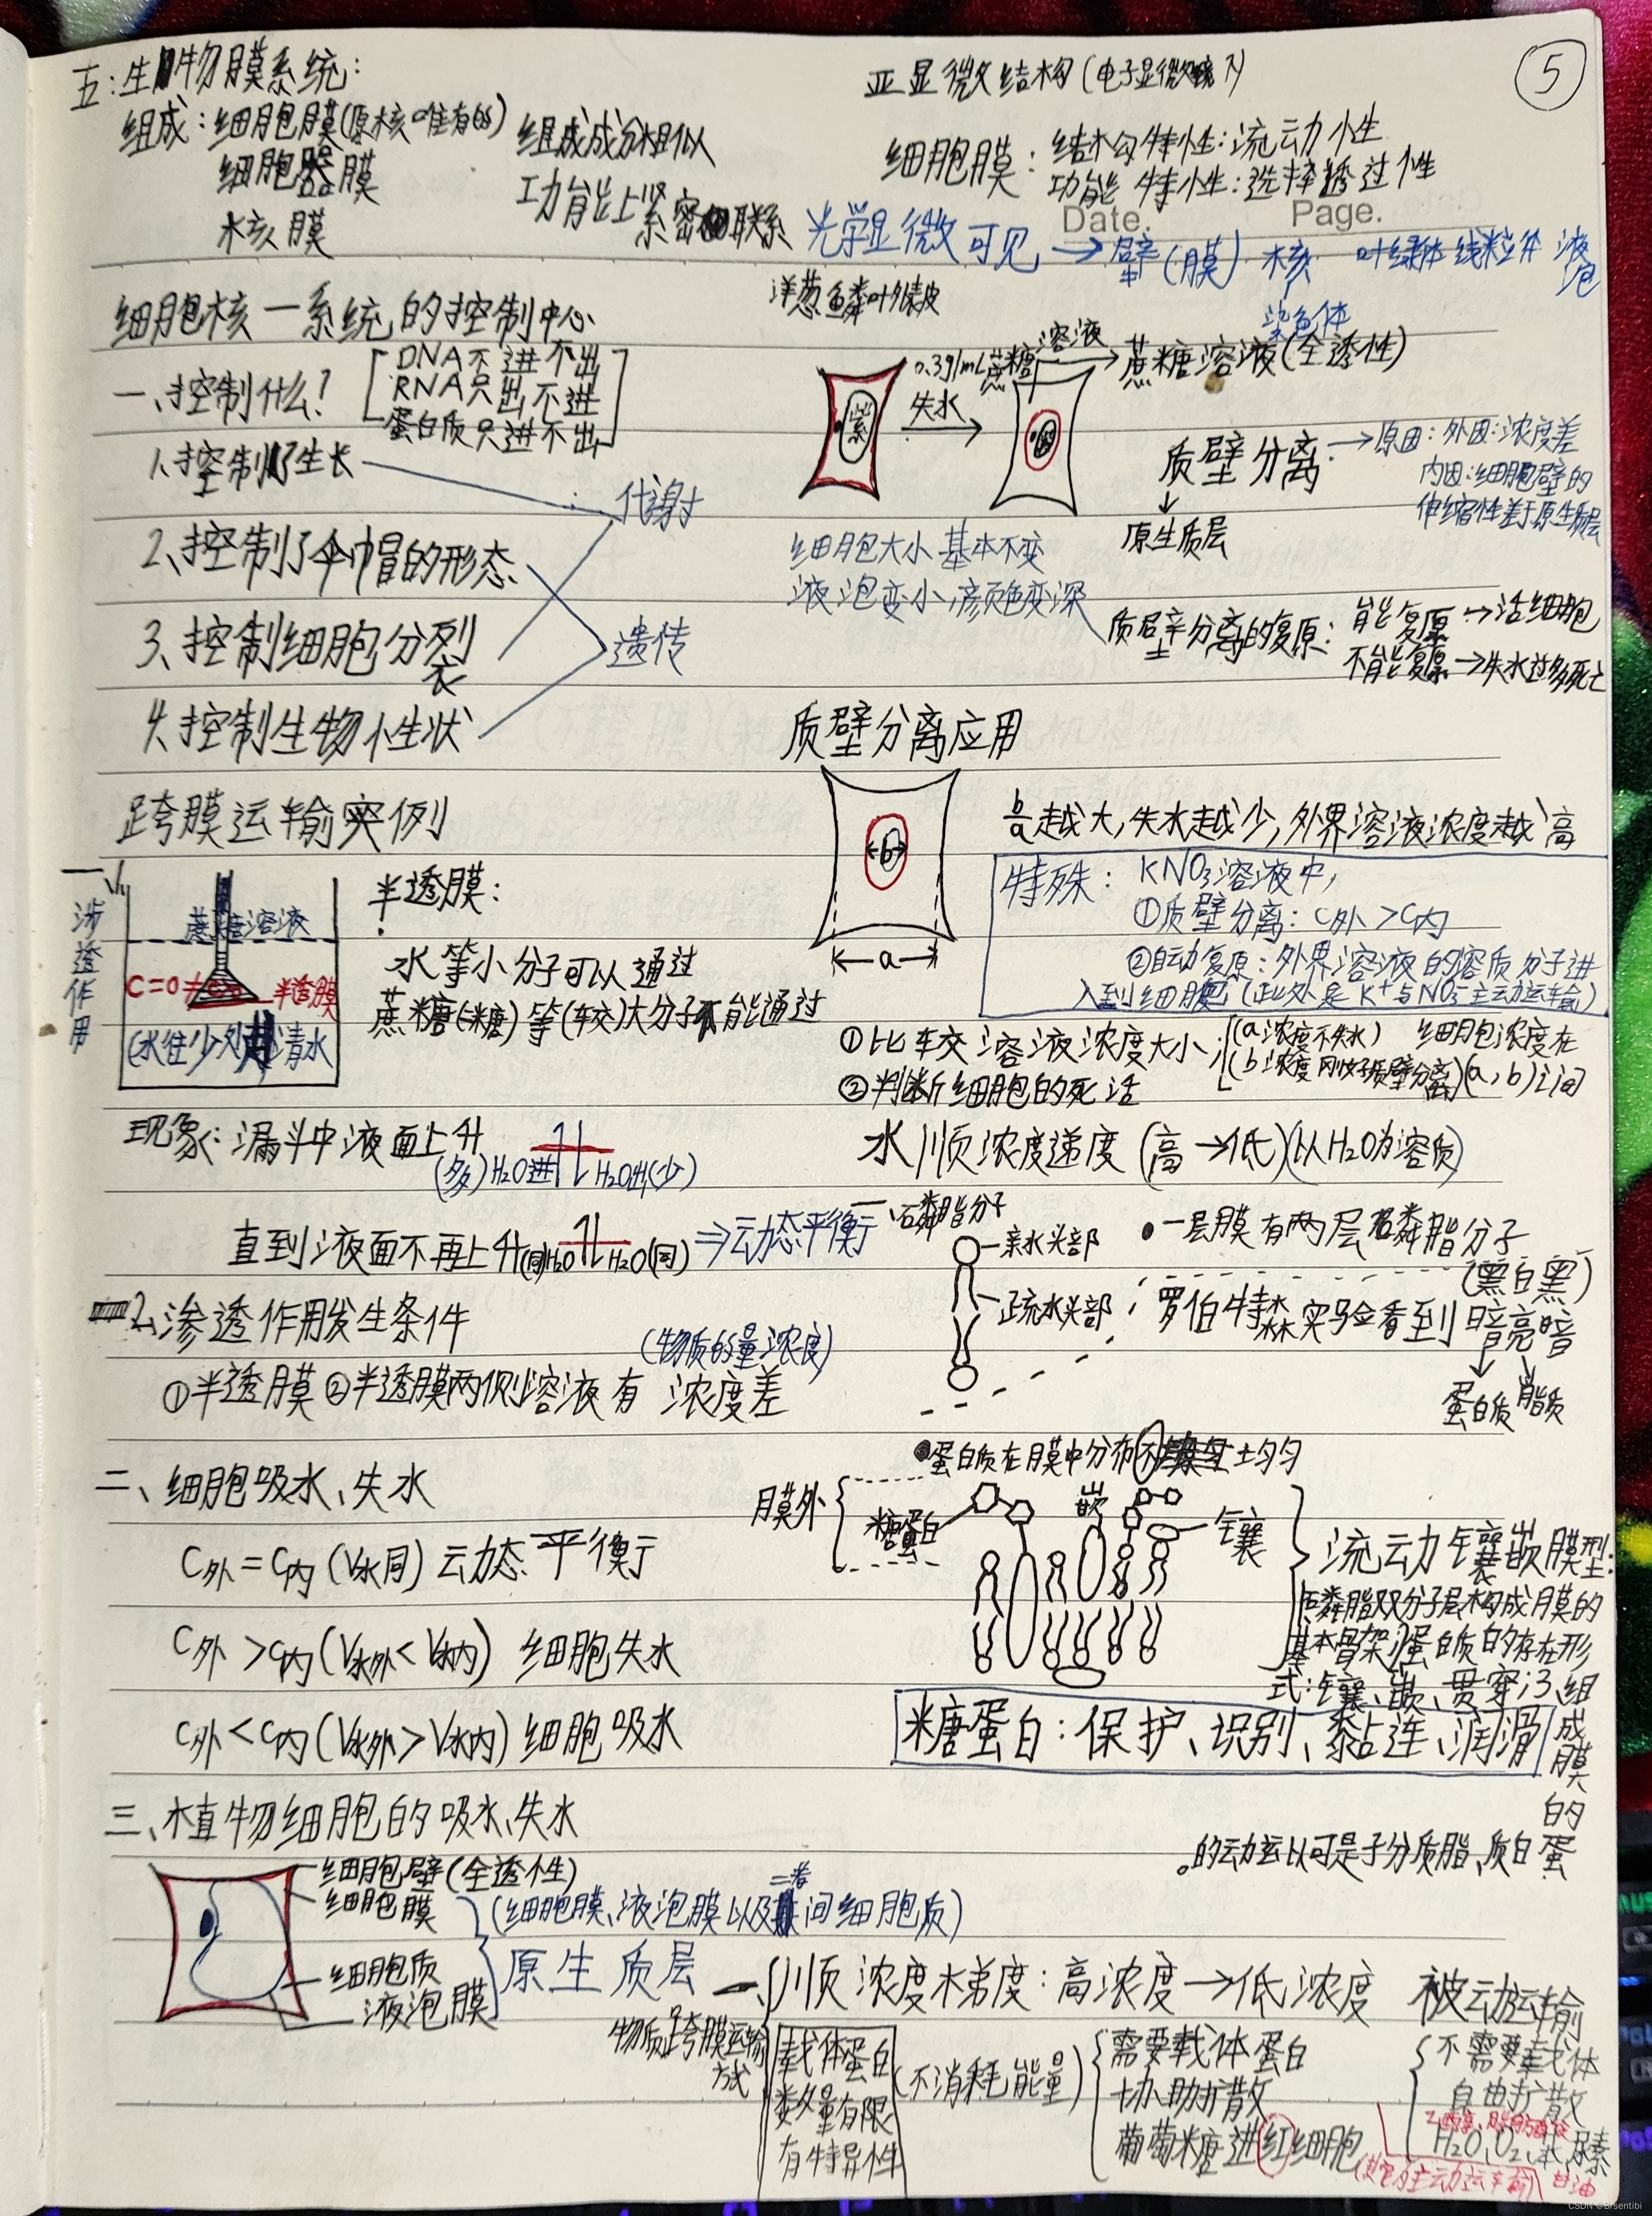 五:生物膜系统:
组成:细胞膜(原核唯有的)
细胞器膜
核膜
组成成分相似
功能上紧密联系
亚显微结构(电子显微镜下)
5
细胞膜:结构特性:流动性
功能特性:选择透过性
Date.
Page.
光学显微可见→壁(膜) 核 叶绿体 线粒体 液泡
染色体
细胞核—系统的控制中心
一、控制什么?
DNA不进不出
RNA只出不进
蛋白质只进不出
1、控制了生长
2、控制了伞帽的形态
3、控制细胞分裂
4、控制生物性状
代谢
遗传
洋葱鳞叶外表皮
紫
0.3g/mL蔗糖溶液
失水
蔗糖溶液(全透性)
质壁分离→原因:外因:浓度差
内因:细胞壁的
伸缩性差于原生质层
原生质层
细胞大小基本不变
液泡变小,颜色变深
质壁分离的复原:能复原→活细胞
不能复原→失水过多死亡
质壁分离应用
b
a
b/a越大,失水越少,外界溶液浓度越高
特殊:KNO₃溶液中,
①质壁分离:C外>C内
②自动复原:外界溶液的溶质分子进
入到细胞(此处是K⁺与NO₃⁻主动运输)
①比较溶液浓度大小:(a浓度不失水) 细胞浓度在
(b浓度刚好质壁分离)(a,b)之间
②判断细胞的死活
水顺浓度递度(高→低)(以H₂O为溶质)
跨膜运输实例
渗透作用
蔗糖溶液
半透膜
(水往少处 清水
半透膜:
水等小分子可以通过
蔗糖(糖)等(较)大分子不能通过
现象:漏斗中液面上升
(多)H₂O进 H₂O出(少)
直到液面不再上升(同)H₂O H₂O(同)⇒动态平衡
2、渗透作用发生条件
(物质的量浓度)
①半透膜②半透膜两侧溶液有 浓度差
二、细胞吸水、失水
C外=C内(V水同)动态平衡
C外>C内(V水外<V水内) 细胞失水
C外<C内(V水外>V水内)细胞吸水
一、磷脂分子
亲水头部
疏水头部
一层膜有两层磷脂分子
(黑白黑)
罗伯特森实验看到暗亮暗
蛋白质 脂质
蛋白质在膜中分布不均匀
膜外
糖蛋白
嵌
镶
流动镶嵌膜型:
磷脂双分子层构成膜的
基本骨架;蛋白质的存在形
式:镶、嵌、贯穿;3、组
成膜的蛋
白质、脂质分子是可以运动的。
糖蛋白:保护、识别、黏连、润滑
三、植物细胞的吸水、失水
细胞壁(全透性)
细胞膜
细胞质
液泡膜
(细胞膜、液泡膜以及二者间细胞质)
原生质层
物质跨膜运输方式
顺浓度梯度:高浓度→低浓度 被动运输
载体蛋白
数量有限
有特异性
(不消耗能量)
需要载体蛋白
协助扩散
葡萄糖进红细胞
不需要载体
自由扩散
H₂O、O₂、苯、尿素
甘油
(其它为主动运输)
CSDN @Brsentibi